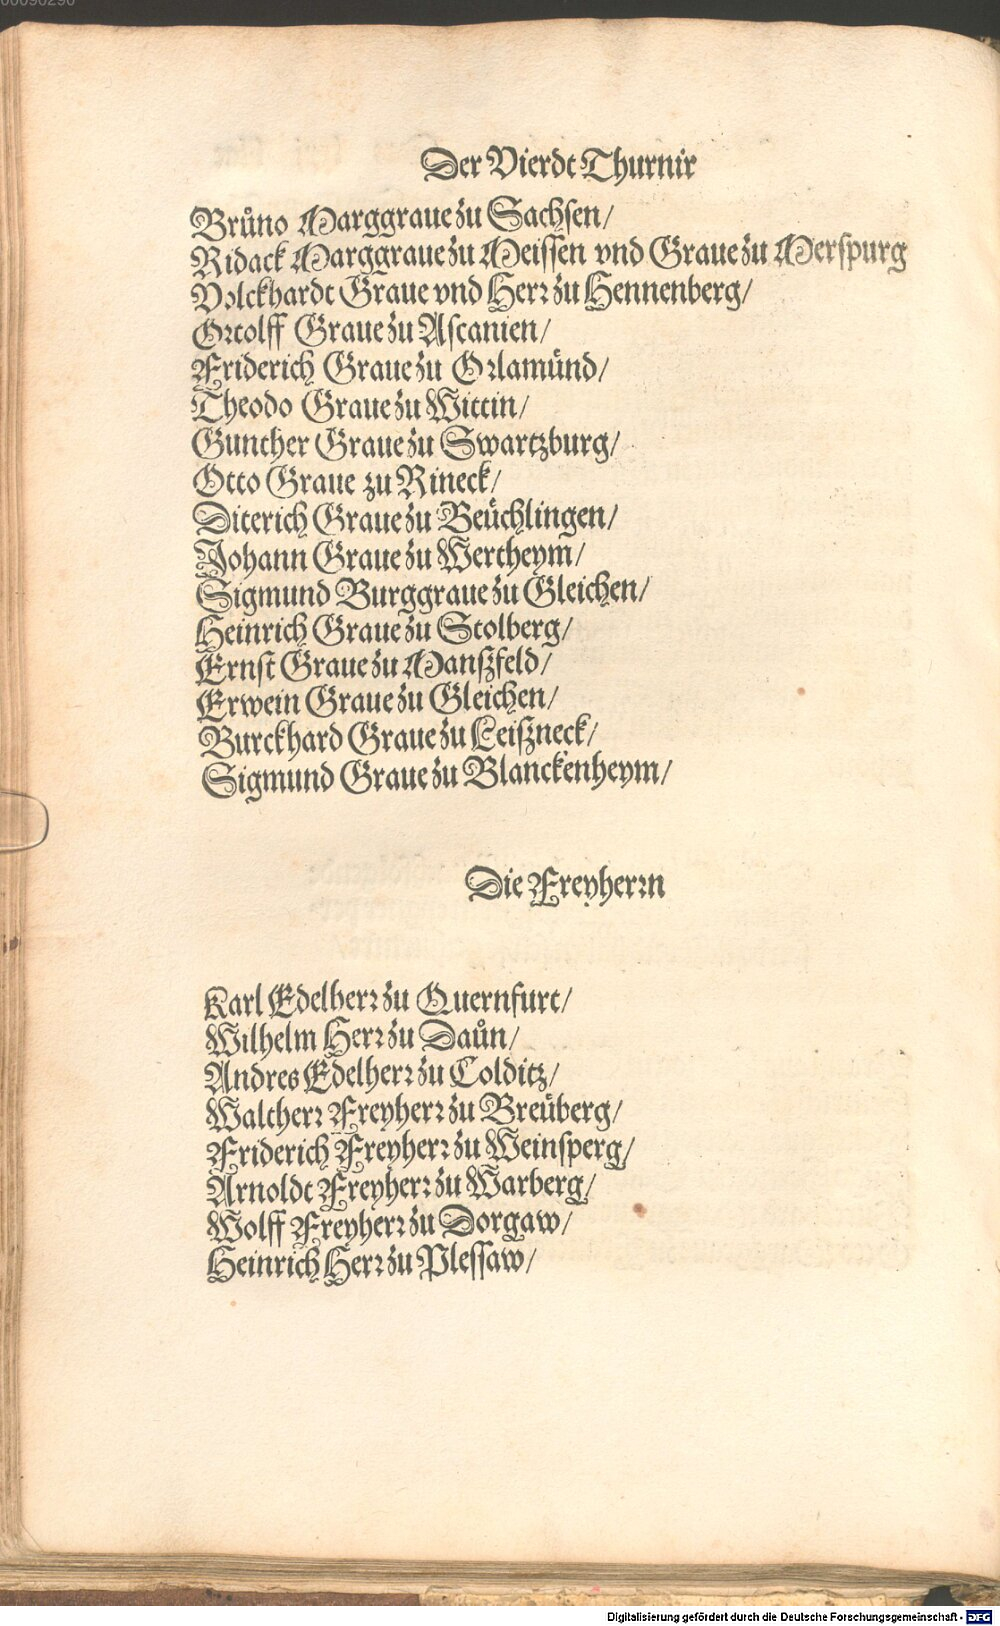 00090290
Der Vierdt Thurnir
Brůno Marggraue zu Sachsen/
Ridack Marggraue zu Meissen vnd Graue zu Merspurg
Volckhardt Graue vnd Herr zu Hennenberg/
Ortolff Graue zu Ascanien/
Friderich Graue zu Orlamünd/
Theodo Graue zu Wittin/
Gunther Graue zu Swartzburg/
Otto Graue zu Rineck/
Diterich Graue zu Beüchlingen/
Johann Graue zu Wertheym/
Sigmund Burggraue zu Gleichen/
Heinrich Graue zu Stolberg/
Ernst Graue zu Manßfeld/
Erwein Graue zu Gleichen/
Burckhard Graue zu Leißneck/
Sigmund Graue zu Blanckenheym/
Die Freyherrn
Karl Edelherr zu Quernfurt/
Wilhelm Herr zu Daůn/
Andres Edelherr zu Colditz/
Waltherr Freyherr zu Breüberg/
Friderich Freyherr zu Weinsperg/
Arnoldt Freyherr zu Warberg/
Wolff Freyherr zu Dorgaw/
Heinrich Herr zu Plessaw/
Digitalisierung gefördert durch die Deutsche Forschungsgemeinschaft - DFG